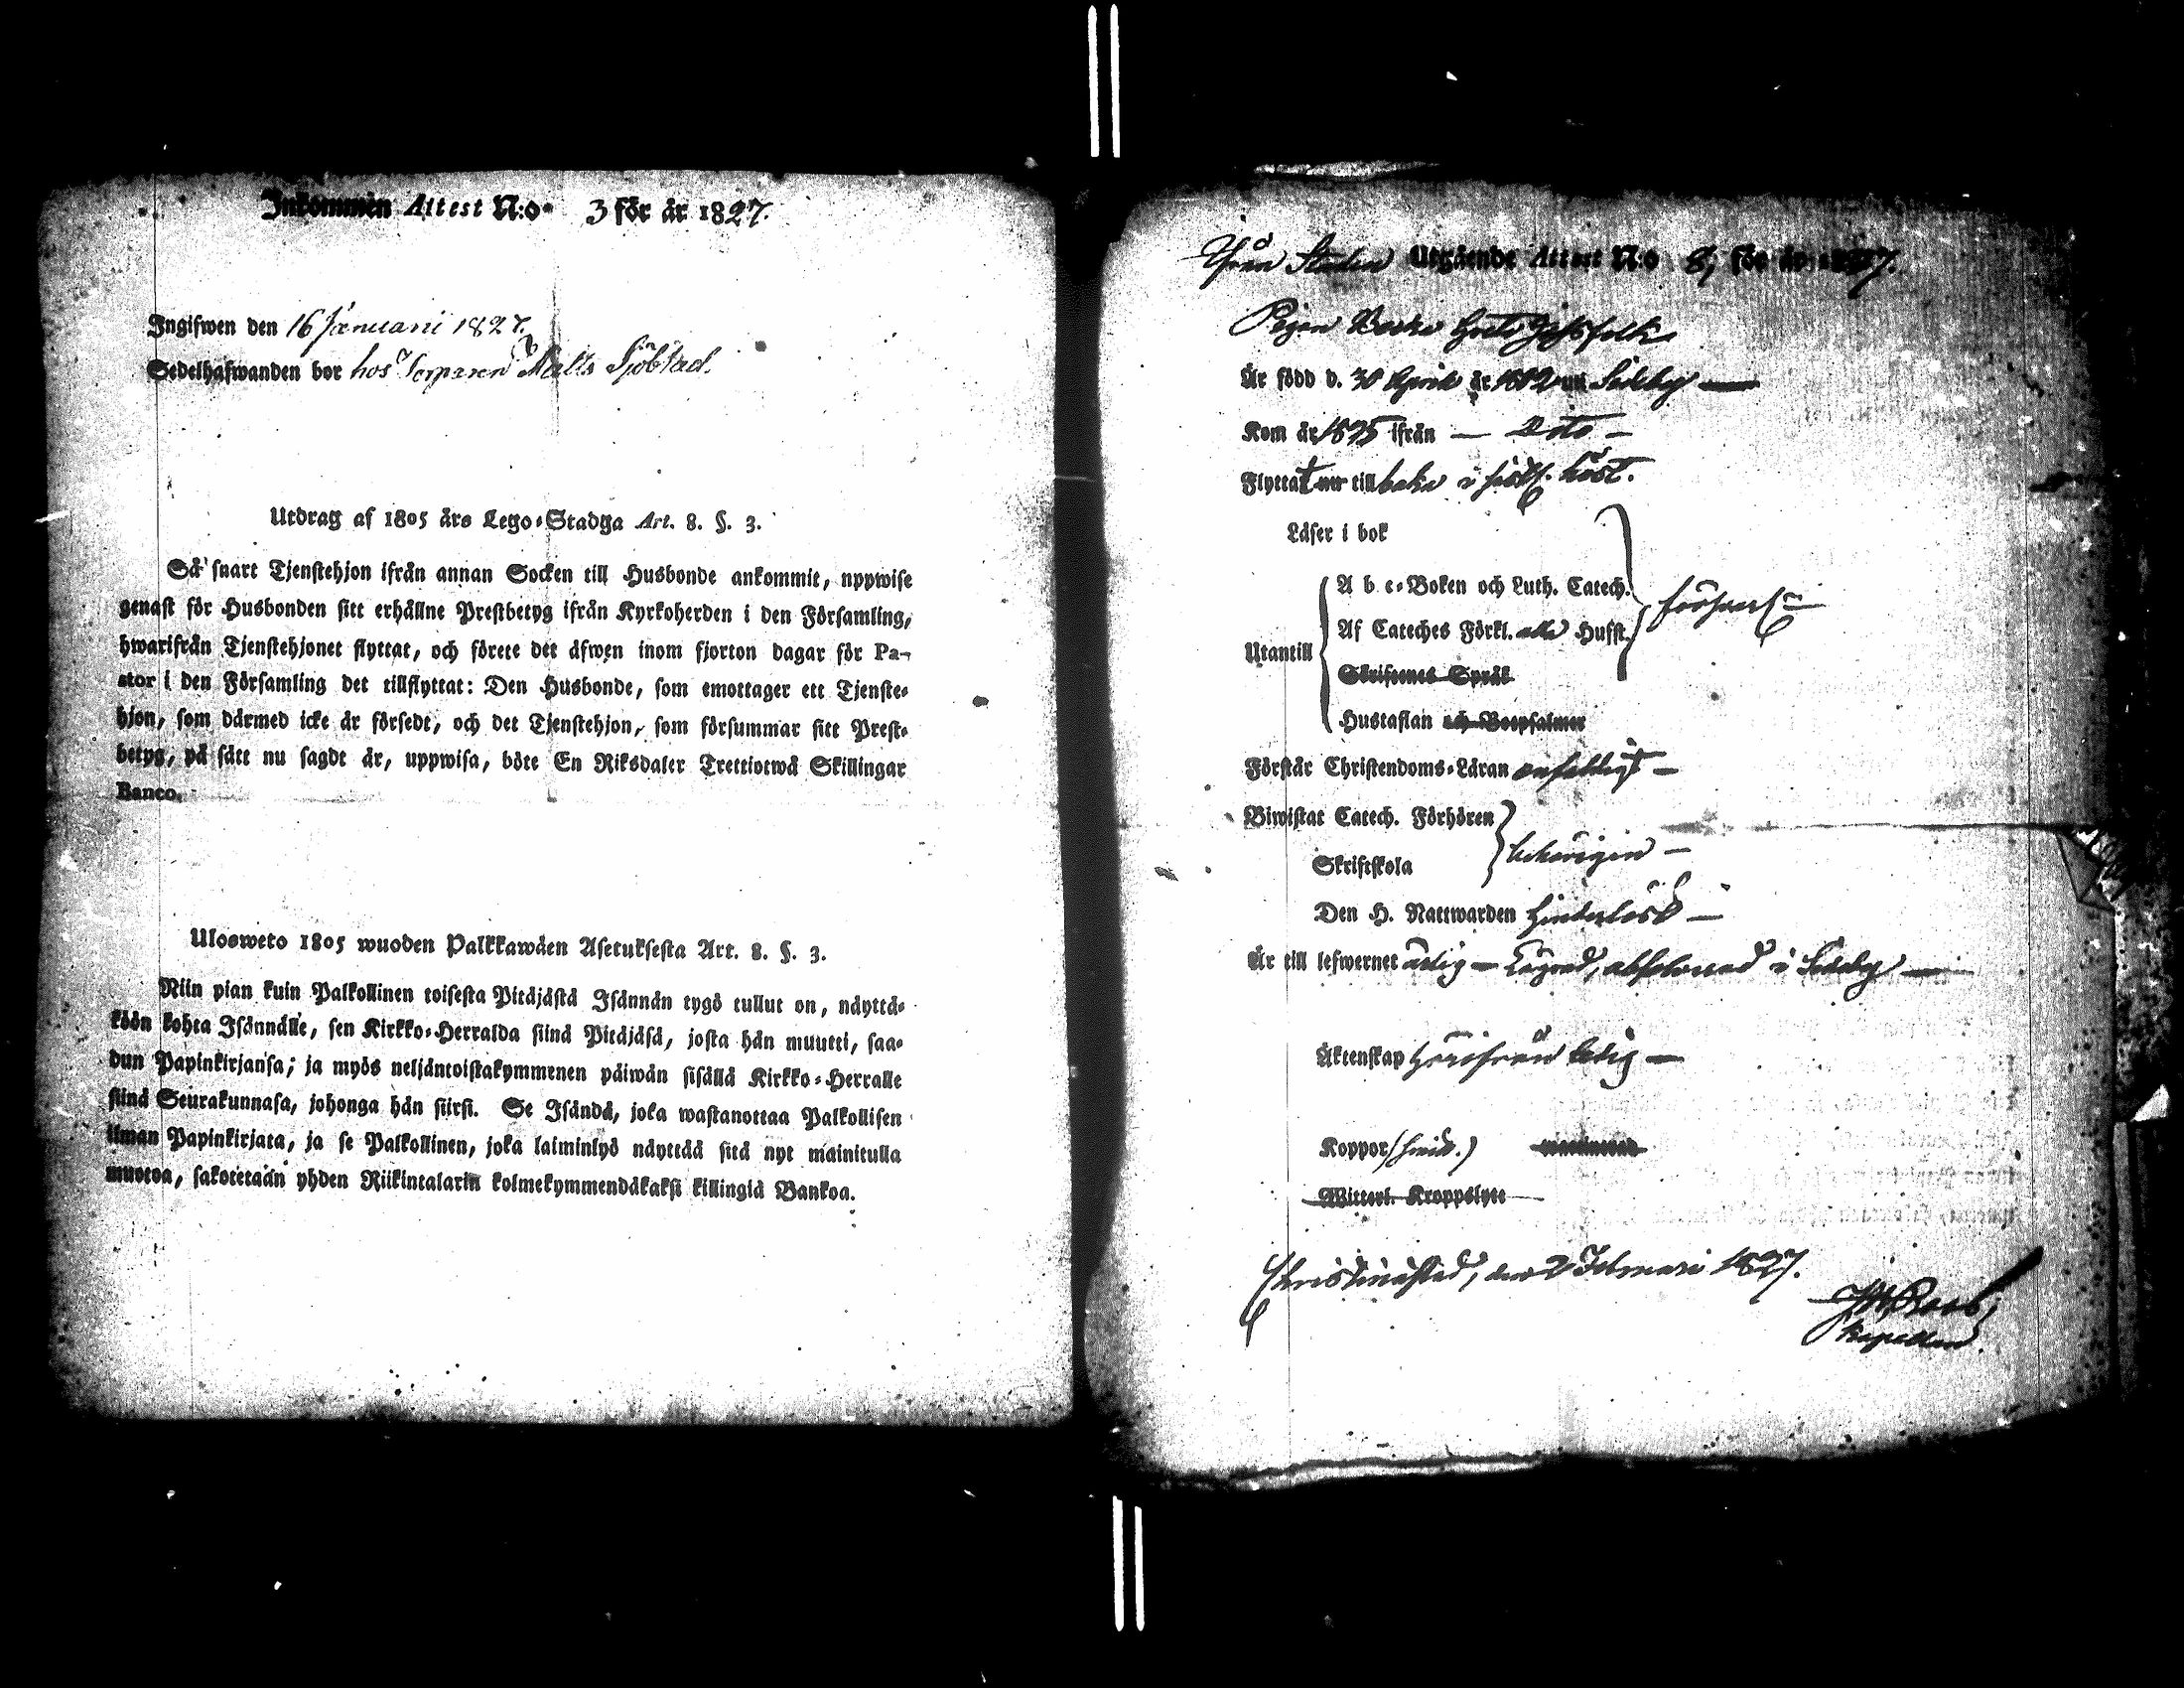 Inkommen Attest N:o 3 för år 1827.
Ingifwen den 16 Januarii 1827.
Sedelhafwanden bor hos Torparen Matts Sjöblad.
Utdrag af 1805 års Lego-Stadga Art. 8. §. 3.
Så snart Tjenstehjon ifrån annan Socken till Husbonde ankommit, uppwise
genast för Husbonden sitt erhållne Prestbetyg ifrån Kyrkoherden i den Församling,
hwarifrån Tjenstehjonet flyttat, och förete det äfwen inom fjorton dagar för Pa-
stor i den Församling det tillflyttat: Den Husbonde, som emottager ett Tjenste-
hjon, som därmed icke är försedt, och det Tjenstehjon, som försummar sitt Prest-
betyg, på sätt nu sagdt är, uppwisa, böte En Riksdaler Trettiotwå Skillingar
Banco.
Ulosweto 1805 wuoden Palkkawäen Asetuksesta Art. 8. §. 3.
Niin pian kuin Palkollinen toisesta Pitäjästä Isännän tygö tullut on, näyttä-
köön kohta Isännälle, sen Kirkko-Herralda siinä Pitäjäsä, josta hän muutti, saa-
dun Papinkirjansa; ja myös neljäntoistakymmenen päiwän sisällä Kirkko-Herralle
siinä Seurakunnasa, johonga hän siirsi. Se Isändä, joka wastanottaa Palkollisen
ilman Papinkirjata, ja se Palkollinen, joka laiminlyö näyttää sitä nyt mainitulla
muotoa, sakotetaan yhden Riikintalarin kolmekymmendäkaksi killingiä Bankoa.
Ifrån Staden Utgående Attest N:o 8, för år 1827.
Pigan Greta
Är född d. 30 April år 1802 uti Sideby
Kom år 1825 ifrån — Dito —
Flyttat nu tillbaka i höst.
Läser i bok
A b c-Boken och Luth. Catech.
Af Cateches Förkl. alla Husst.
Utantill
Skriftenes Språk
Hustaflan och Botpsalmer
Förstår Christendoms-Läran enfaldigt —
Biwistat Catech. Förhören
behörigen —
Skriftskola
Den H. Nattwarden hinderlöst —
Är till lefwernet ärlig — Lägrad, absolverad i Sideby —
Äktenskap härifrån ledig —
Koppor
vaccinerad
Witterl. Kroppslyte
Christinestad, den 2 Februari 1827.
Kapellan.